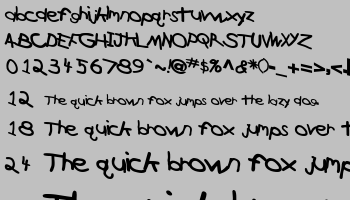 abcdefghijklmnopqrstuvwxyz
ABCDEFGHIJKLMNOPQRSTUVWXYZ
0123456789`~!@#$%^&*()-_+=>,<.
12 The quick brown fox jumps over the lazy dog.
18 The quick brown fox jumps over t
24 The quick brown fox jump